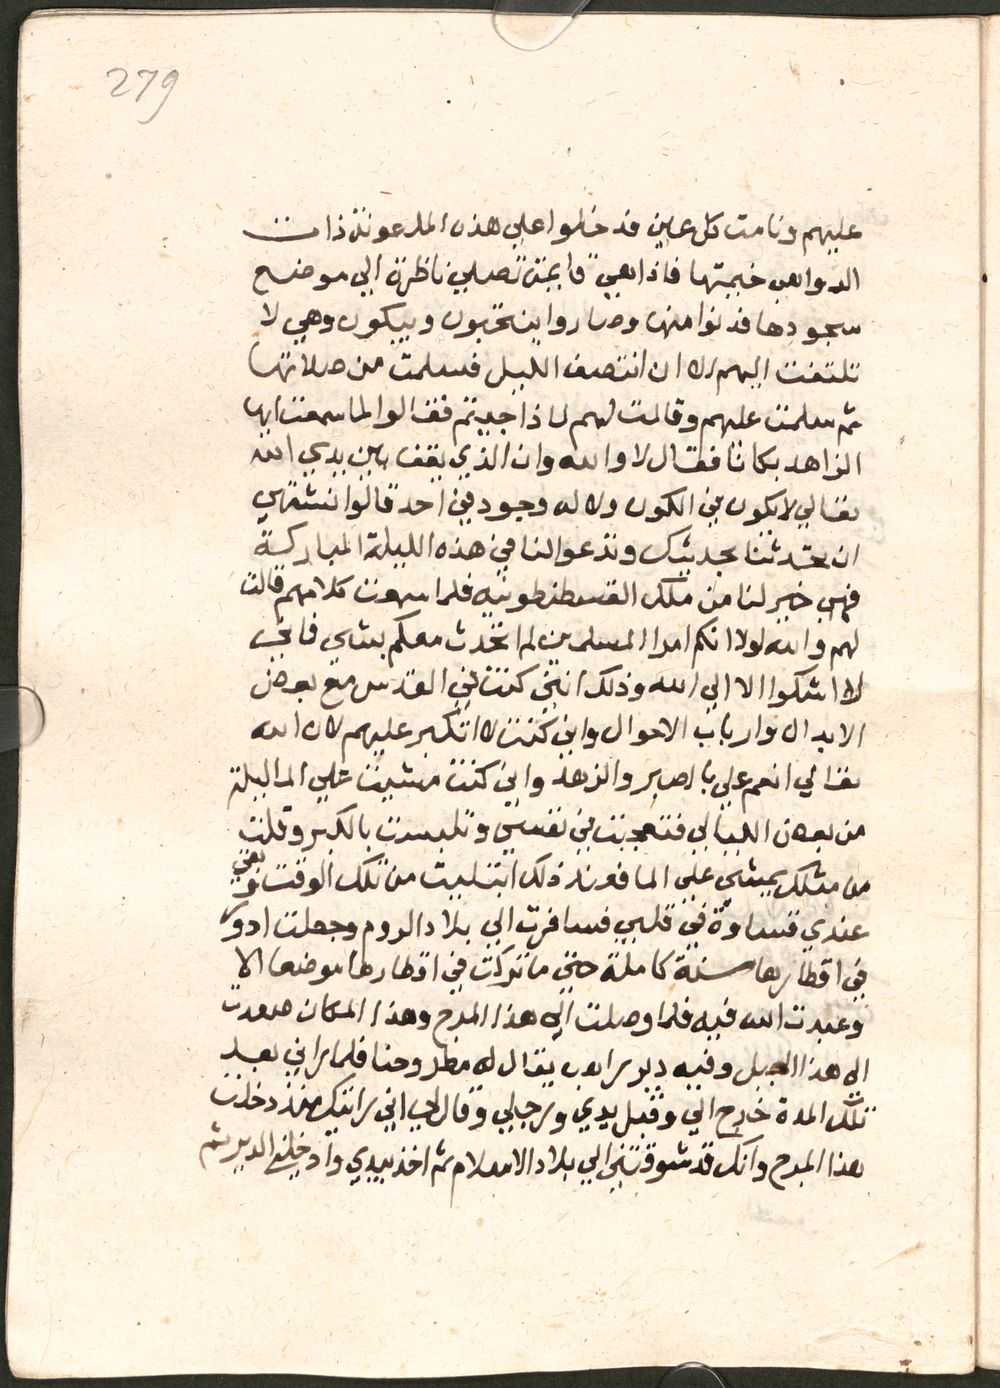 279
عليهم ونامت كل عين فدخلوا علي هذه الملعونة ذات
الدواهي خيمتها فاذا هي قايمة تصلي ناظرة الي موضع
سجودها فدنوا منها وصاروا ينتحبون ويبكون وهي لا
تلتفت اليهم الا ان انتصف الليل فسلمت من صلاتها
ثم سلمت عليهم وقالت لهم لماذا جيتم فقالوا لما سمعت ايها
الزاهد بكانا فقال لا والله وان الذي يقف بين يدي الله
تعالي لا يكون في الكون ولا له وجود في احد قالوا نشتهي
ان تحدثنا بحديثك وتدعوا لنا في هذه الليلة المباركة
فهي خير لنا من ملك القسطنطونيه فلما سمعت كلامهم قالت
لهم والله لولا انكم امرا المسلمين لم اتحدث معكم بشي فاني
لا اشكوا الا الي الله وذلك انني كنت في القدس مع بعض
الابدال وارباب الاحوال واني كنت لا اتكبر عليهم لان الله
تعالي انعم علي بالصبر والزهد واني كنت مشيت علي الما ليلة
من بعض الليالي فتعجبت في نفسي وتلبست بالكبر وقلت
من مثلك يمشي علي الما فعند ذلك ابتليت من تلك الوقت وبقي
عندي قساوة في قلبي فسافرت الي بلاد الروم وجعلت ادور
في اقطارها سنة كاملة حتي ما تركت في اقطارها موضعا الا
وعبدت الله فيه فلما وصلت الي هذا المرج وهذا المكان صعدت
الي هذا الجبل وفيه دير راهب يقال له مطروحنا فلما راني بعد
تلك المدة خارج الي وقبل يدي ورجلي وقال لي اني رايتك منذ دخلت
هذا المرج وانك قد شوقتني الي بلاد الاسلام ثم اخذ بيدي وادخلني الدير ثم